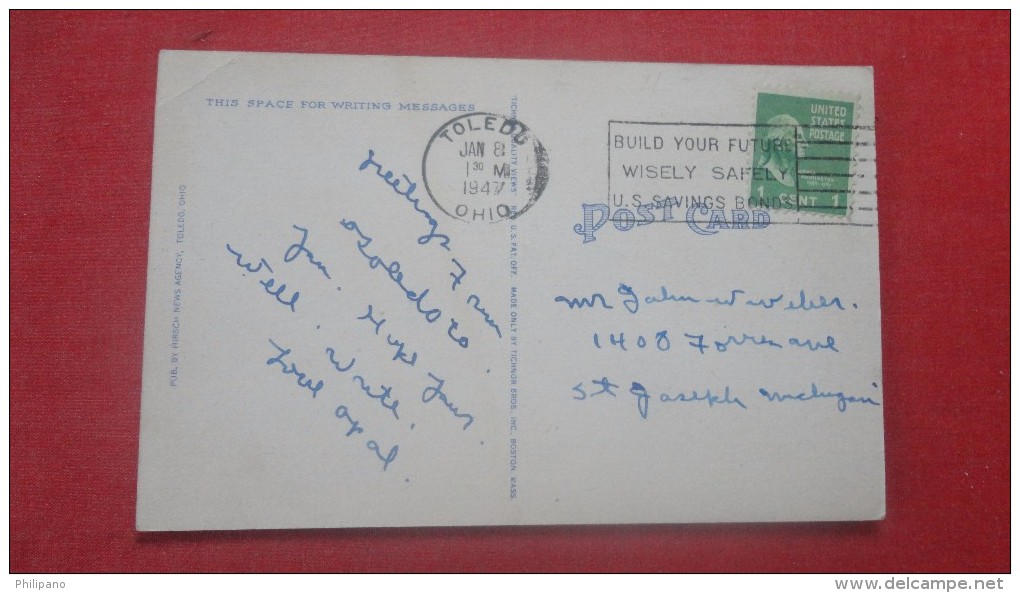 THIS SPACE FOR WRITING MESSAGES
PUB. BY HIRSCH NEWS AGENCY, TOLEDO, OHIO
Greetings From
Toledo to
You. Hope Your
Well. Write.
Love Opal
QUALITY VIEWS REG. U.S. PAT. OFF. MADE ONLY BY TICHNOR BROS. INC. BOSTON MASS.
TOLEDO
JAN 8
1 30 M
1947
OHIO
BUILD YOUR FUTURE
WISELY SAFELY
U.S. SAVINGS BONDS
UNITED
STATES
POSTAGE
1 CENT 1
POST CARD
Mr John W Weber.
1408 Forres ave
St Joseph Michigan
Philipano
www.delcampe.net